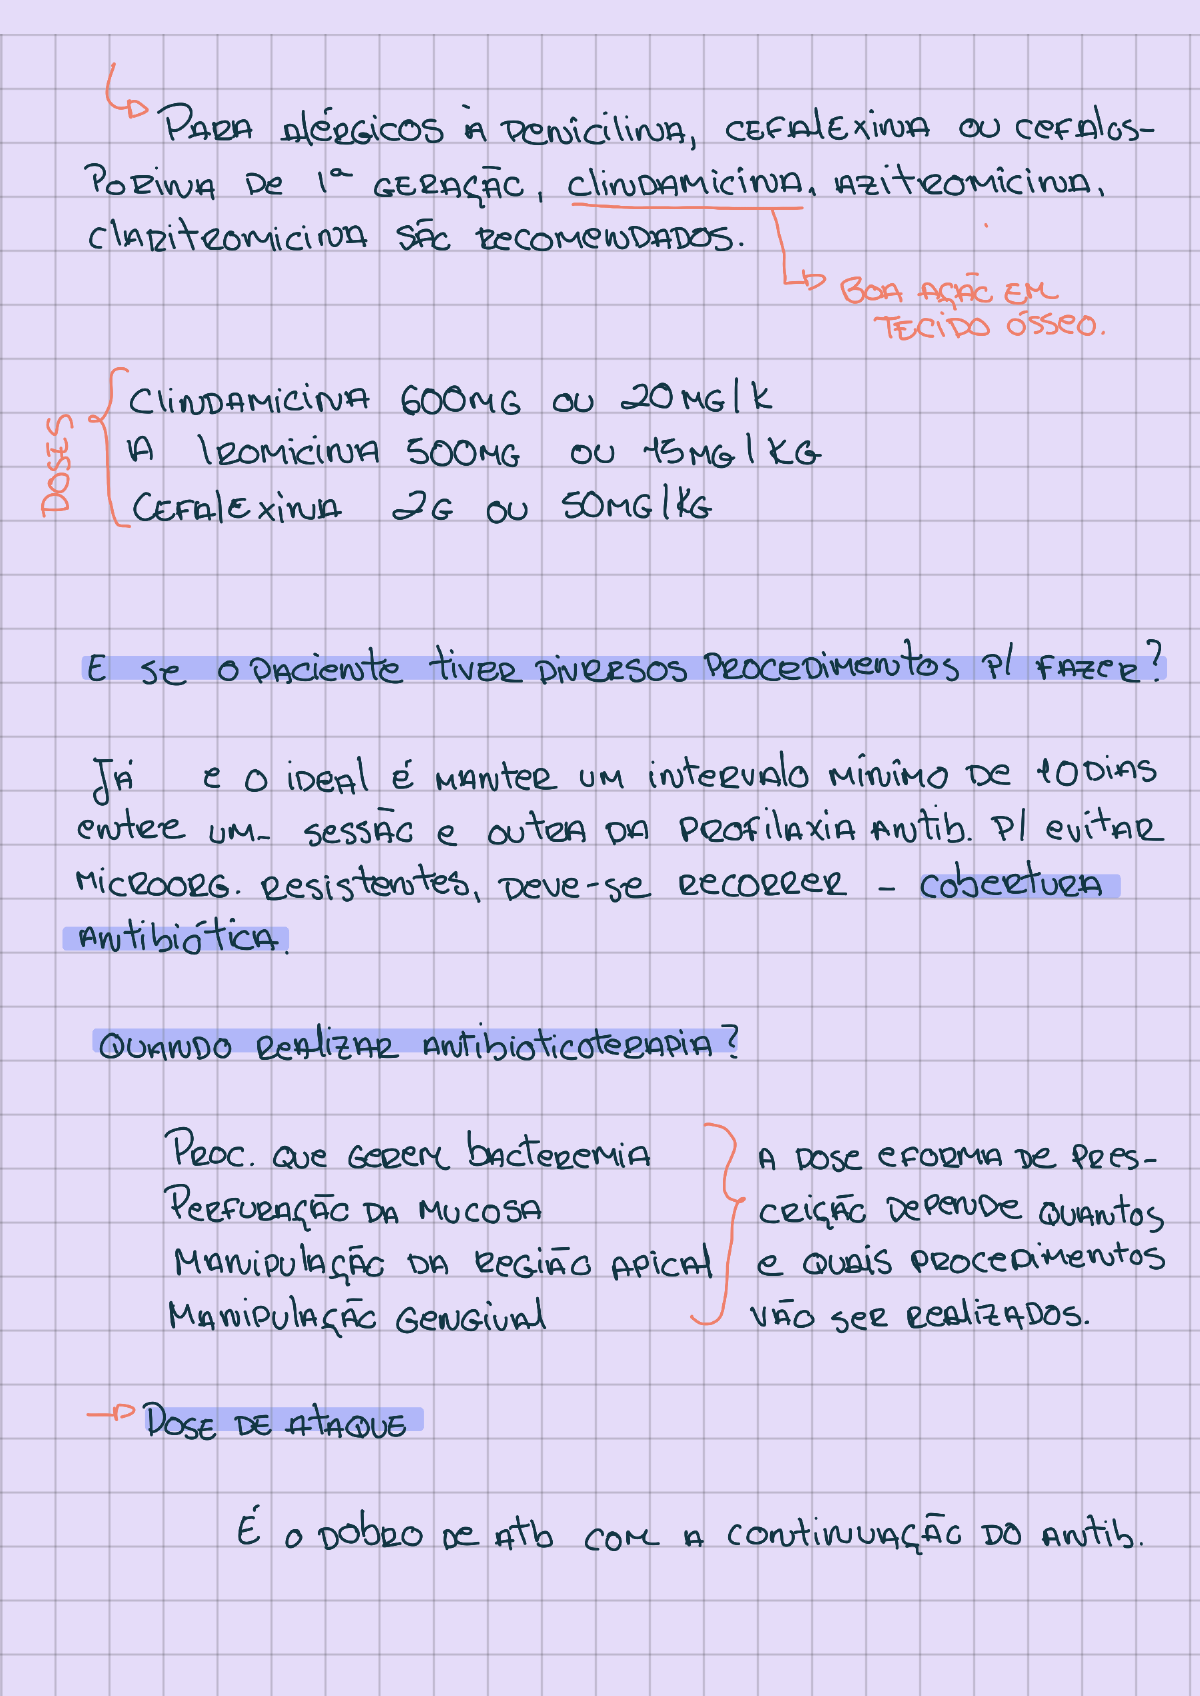 Para alérgicos à penicilina, cefalexina ou cefalos-
porina de 1ª geração, clindamicina, azitromicina,
claritromicina são recomendados.
Boa ação em
tecido ósseo.
Doses
Clindamicina 600mg ou 20mg/k
A tromicina 500mg ou 15mg/kg
Cefalexina 2g ou 50mg/kg
E se o paciente tiver diversos procedimentos p/ fazer?
Já e o ideal é manter um intervalo mínimo de 10 dias
entre um- sessão e outra da profilaxia antib. p/ evitar
microorg. resistentes, deve-se recorrer - cobertura
antibiótica.
Quando realizar antibioticoterapia?
Proc. que gerem bacteremia
Perfuração da mucosa
Manipulação da região apical
Manipulação gengival
A dose e forma de pres-
crição depende quantos
e quais procedimentos
vão ser realizados.
Dose de ataque
É o dobro de atb com a continuação do antib.